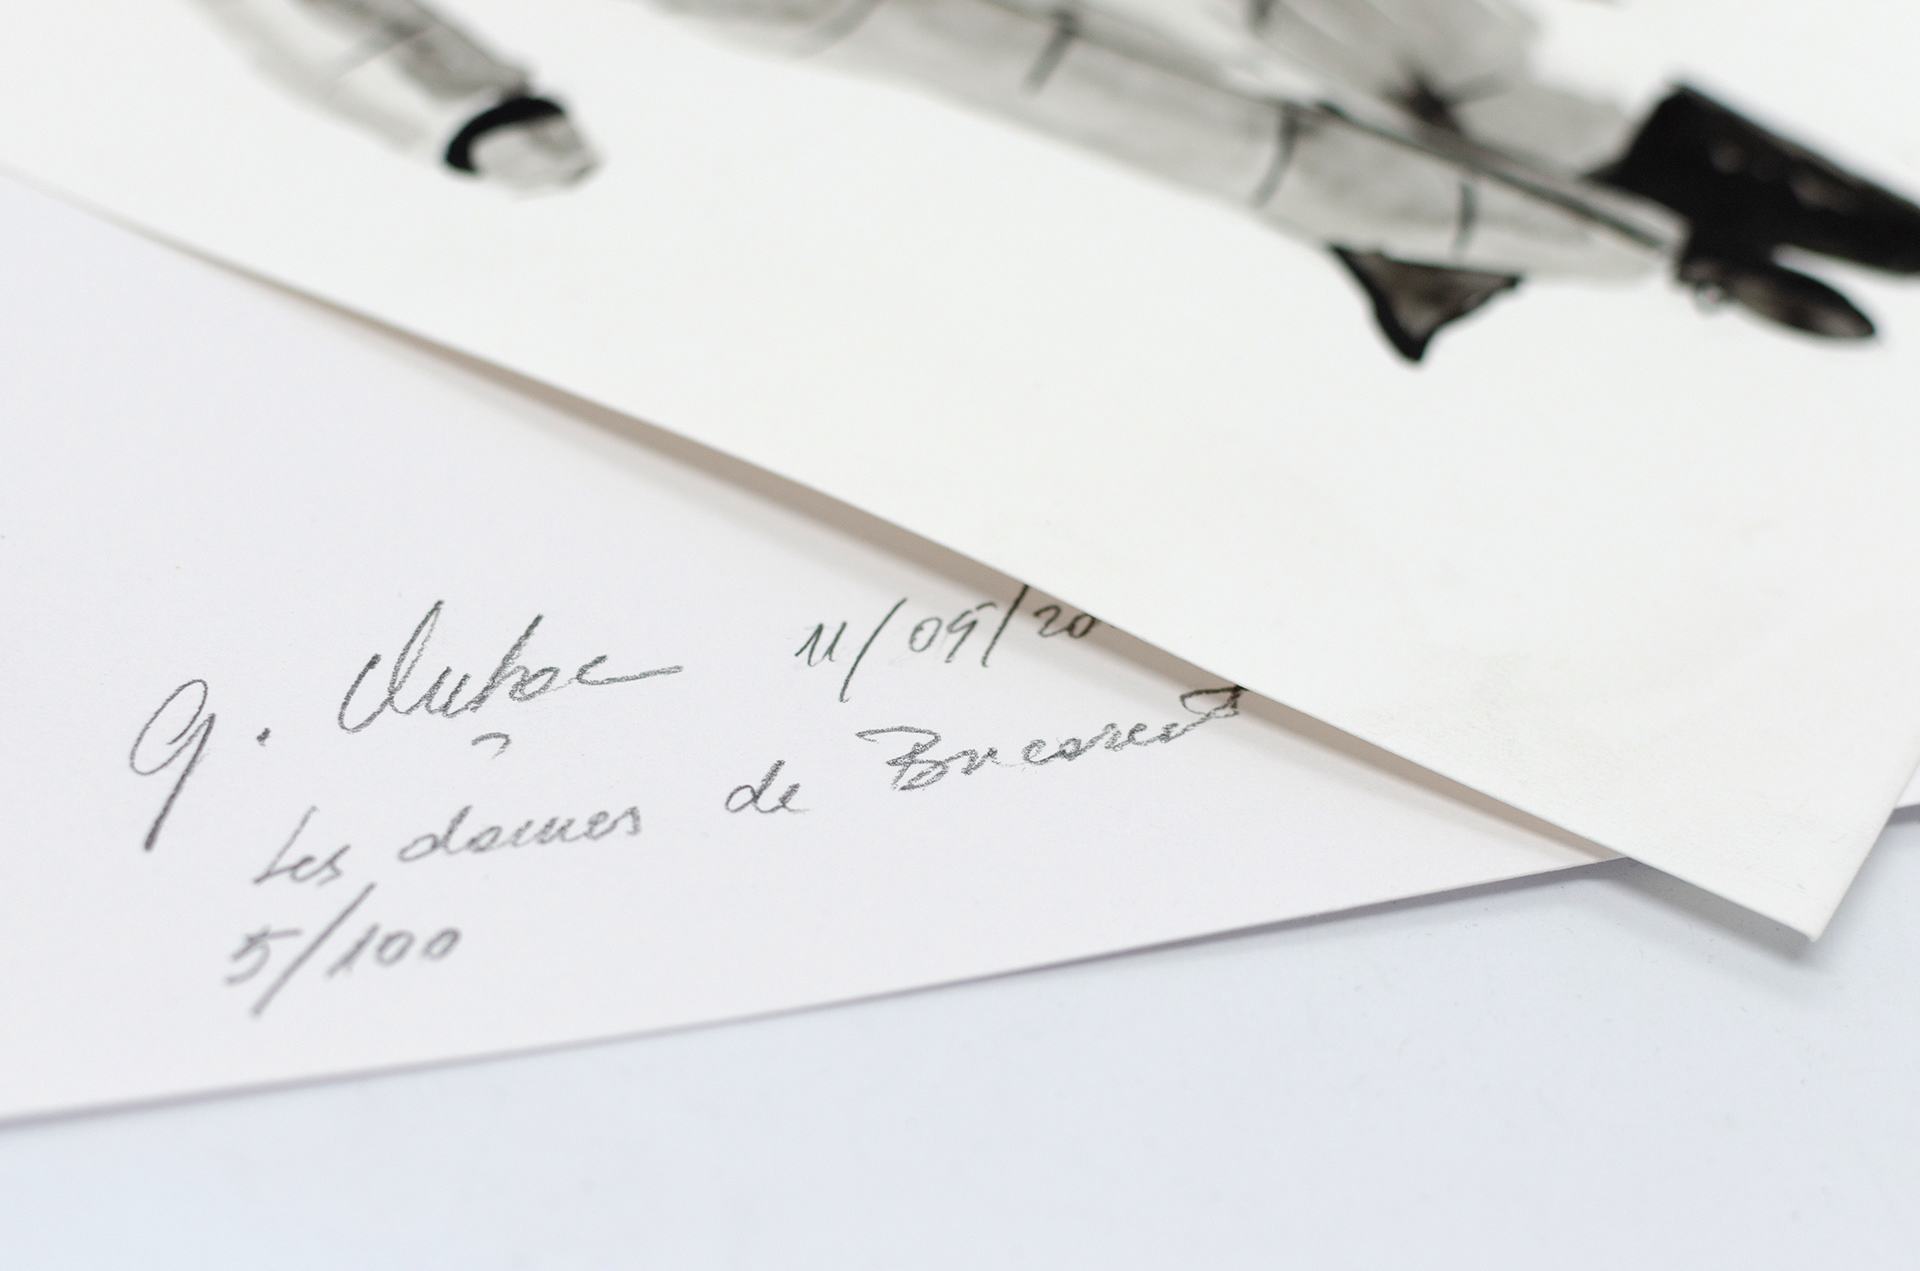 11/09/20
Les dames de Bucarest
5/100